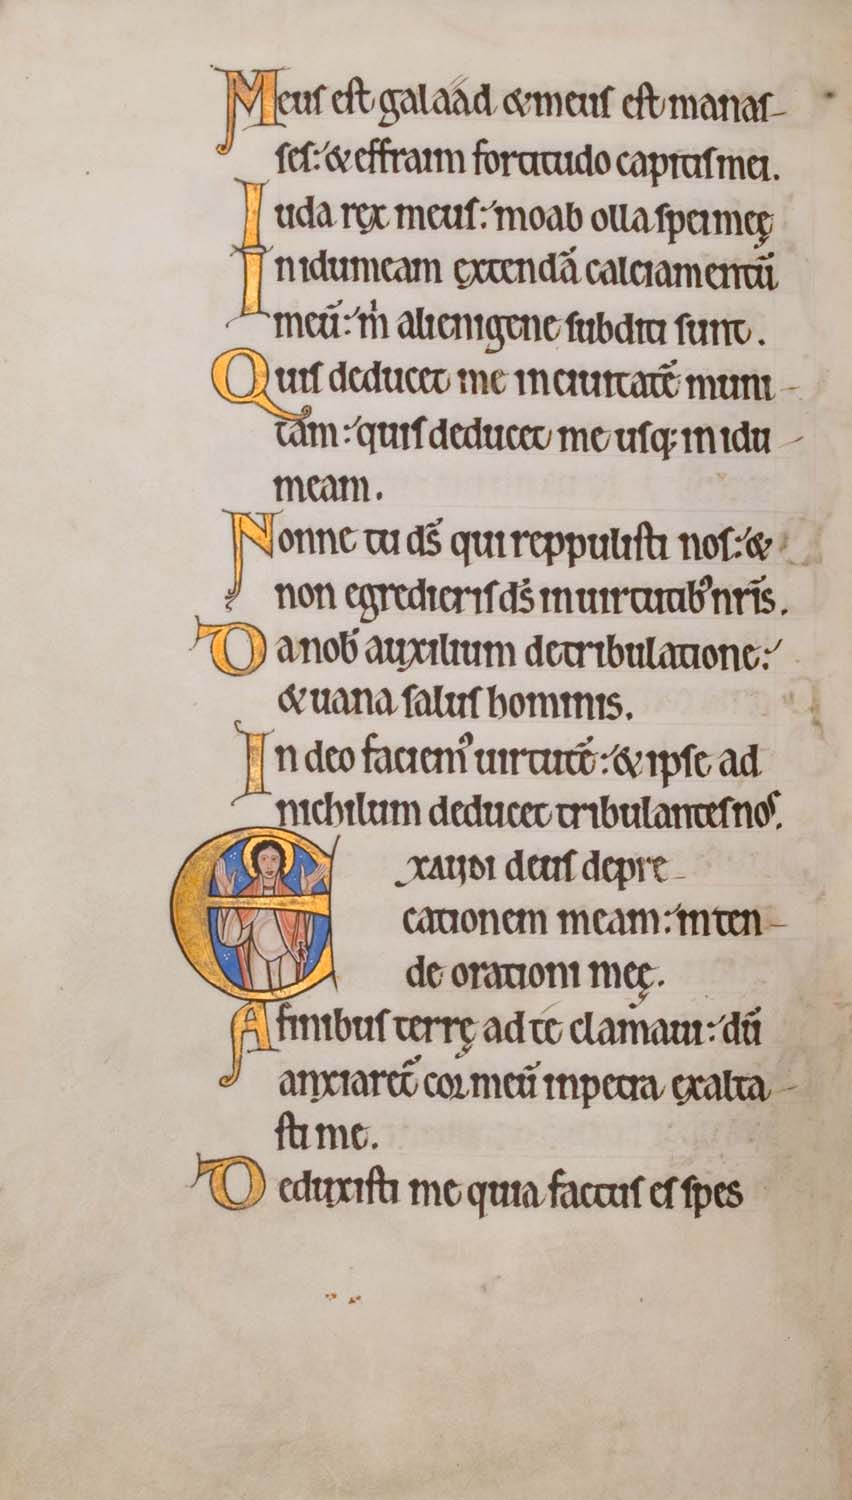 Meus est galaad & meus est manas-
ses: & effraim fortitudo capitis mei.
Iuda rex meus: moab olla spei meę
In idumeam extendā calciamentū
meū: m̄ alienigene subditi sunt.
Quis deducet me in ciuitatē muni-
tam: quis deducet me usq; in idu-
meam.
Nonne tu ds̄ qui reppulisti nos: &
non egredieris ds̄ in uirtutib' nr̄is.
Da nob̄ auxilium de tribulatione:
& uana salus hominis.
In deo faciem' uirtutē: & ipse ad
nichilum deducet tribulantes nos.
Exaudi deus depre-
cationem meam: inten-
de orationi meę.
A finibus terrę ad te clamaui: dū
anxiaret̄ cor meū in petra exalta-
sti me.
Deduxisti me quia factus es spes